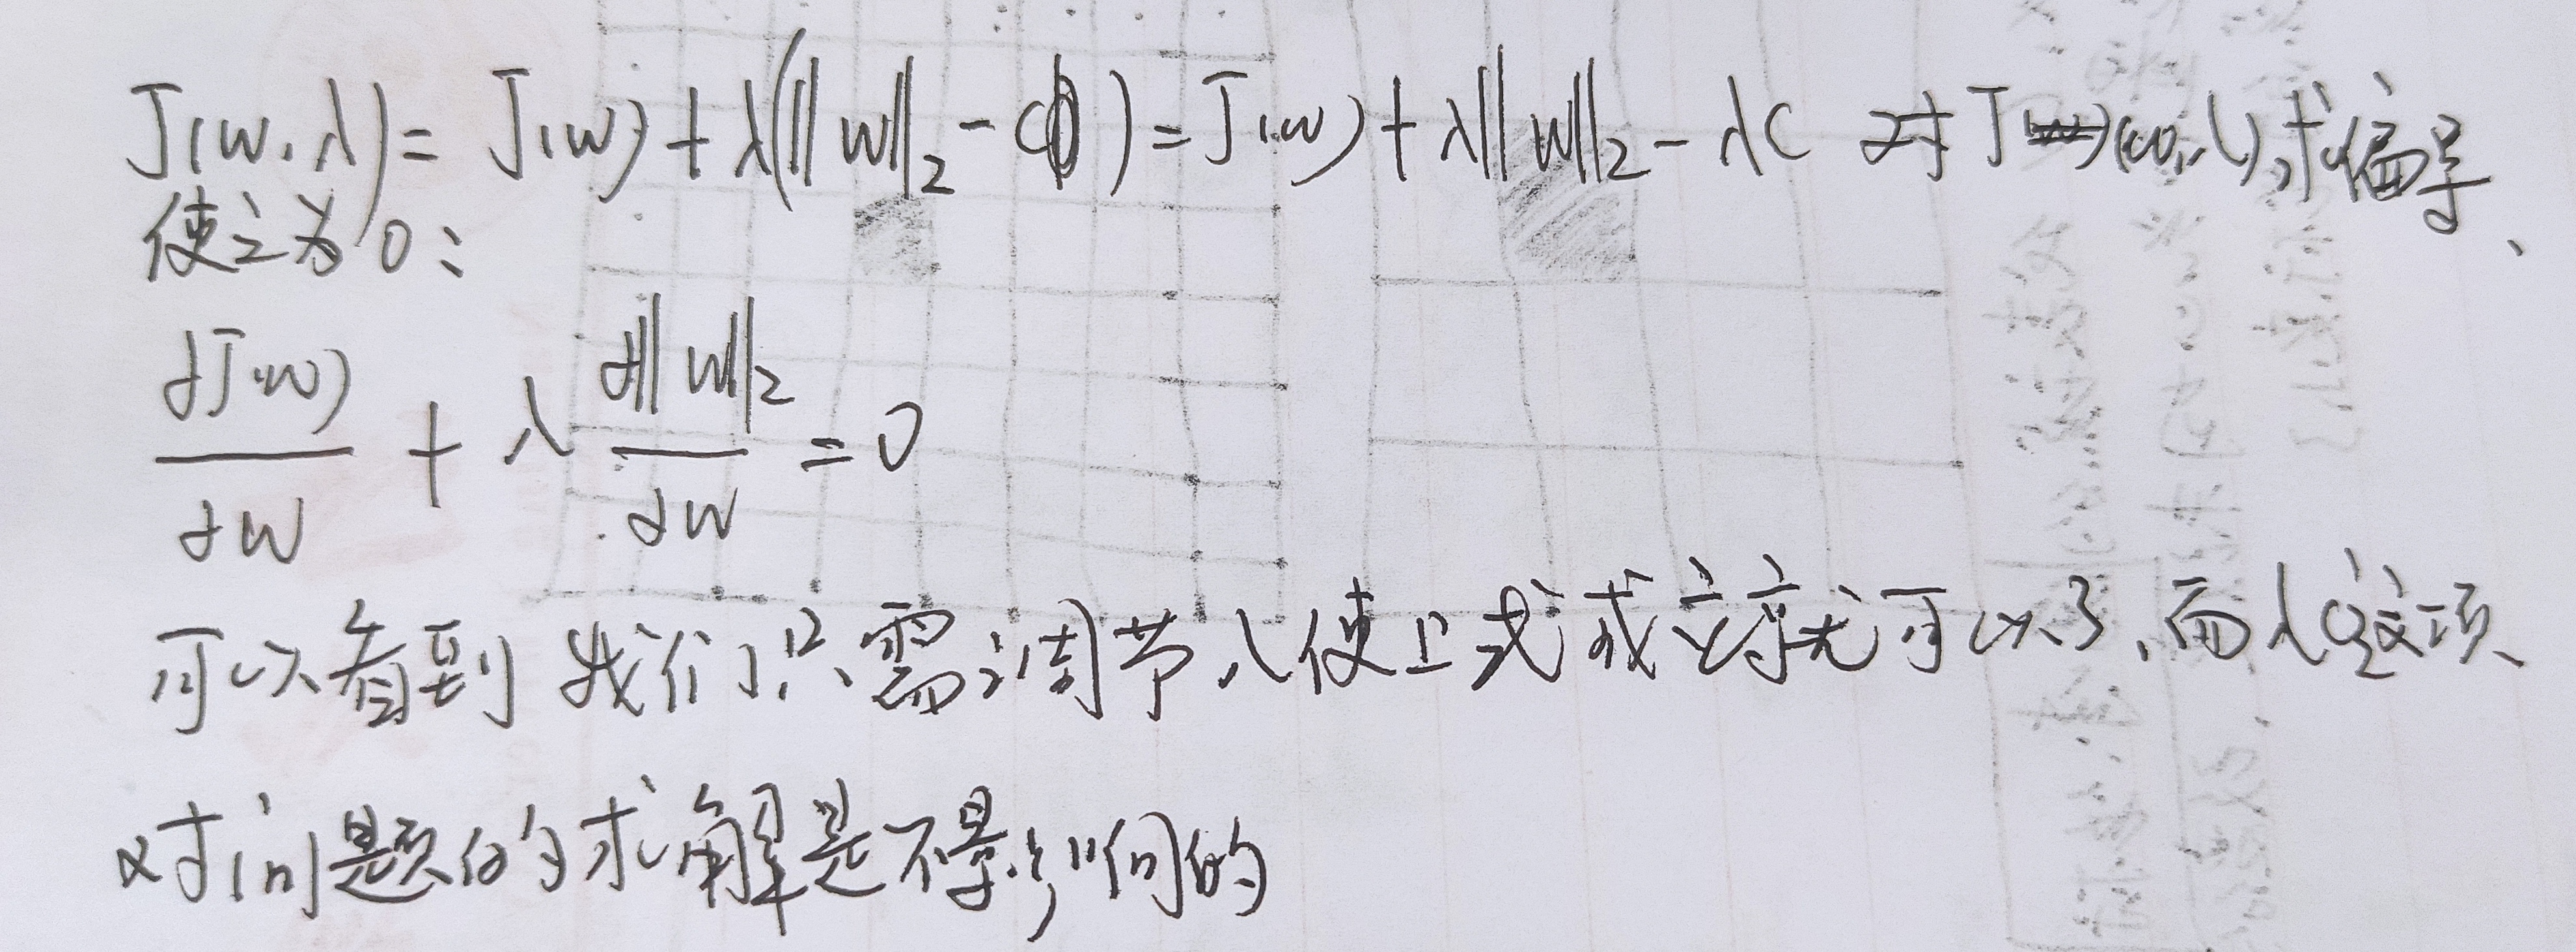 J(w,λ)= J(w) + λ(||w||₂ - C) = J(w) + λ||w||₂ - λC 对 J(w,λ)求偏导、
使之为0:
∂J(w)/∂w + λ ∂||w||₂/∂w = 0
可以看到 我们只需调节λ使上式成立就可以了,而λC这项
对问题的求解是不影响的